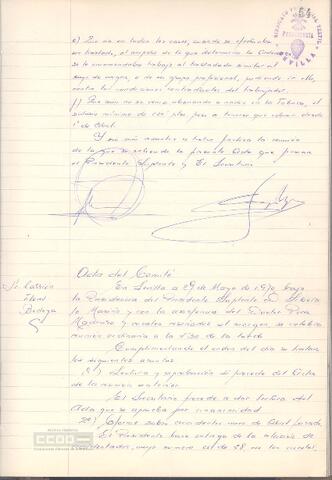 54
SEVILLA
e) Que no en todos los casos, cuando se efectuaba
un traslado, al amparo de lo que determina la Ordenanza
se le encomendaba trabajo al trasladado similar al
suyo de origen, o de su grupo profesional, pudiendo ir ello,
contra las condiciones contractuales del trabajador.
f) Que aún no se venía abonando a todos en la Fabrica, el
salario mínimo de 120 ptas para a tenerse que abonar desde
1º de Abril.
Y sin más asuntos a tratar, finaliza la reunión
de la que se extiende la presente Acta que firman
el Presidente Suplente y El Secretario
Acta del Comité
En Sevilla a 29 de Mayo de 1970, bajo
la Presidencia del Presidente Suplente
y con la asistencia del
y vocales reseñados al margen, se celebra
reunión ordinaria a las de la tarde
Cumplimentando el orden del día se tratan
los siguientes asuntos
1º) Lectura y aprobación si procede del Acta
de la reunión anterior.
El Secretario procede a dar lectura del
Acta que se aprueba por unanimidad
2º) Informe sobre accidentes mes de Abril pasado
El Presidente hace entrega de la relación de
accidentados, cuyo número es de 28, en los cuales,
CCOO